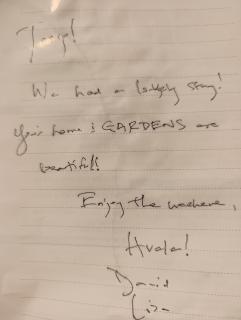 We had a lovely stay!
Your home & GARDENS are
beautiful!
Enjoy the weekend,
Hvala!
David
Lisa